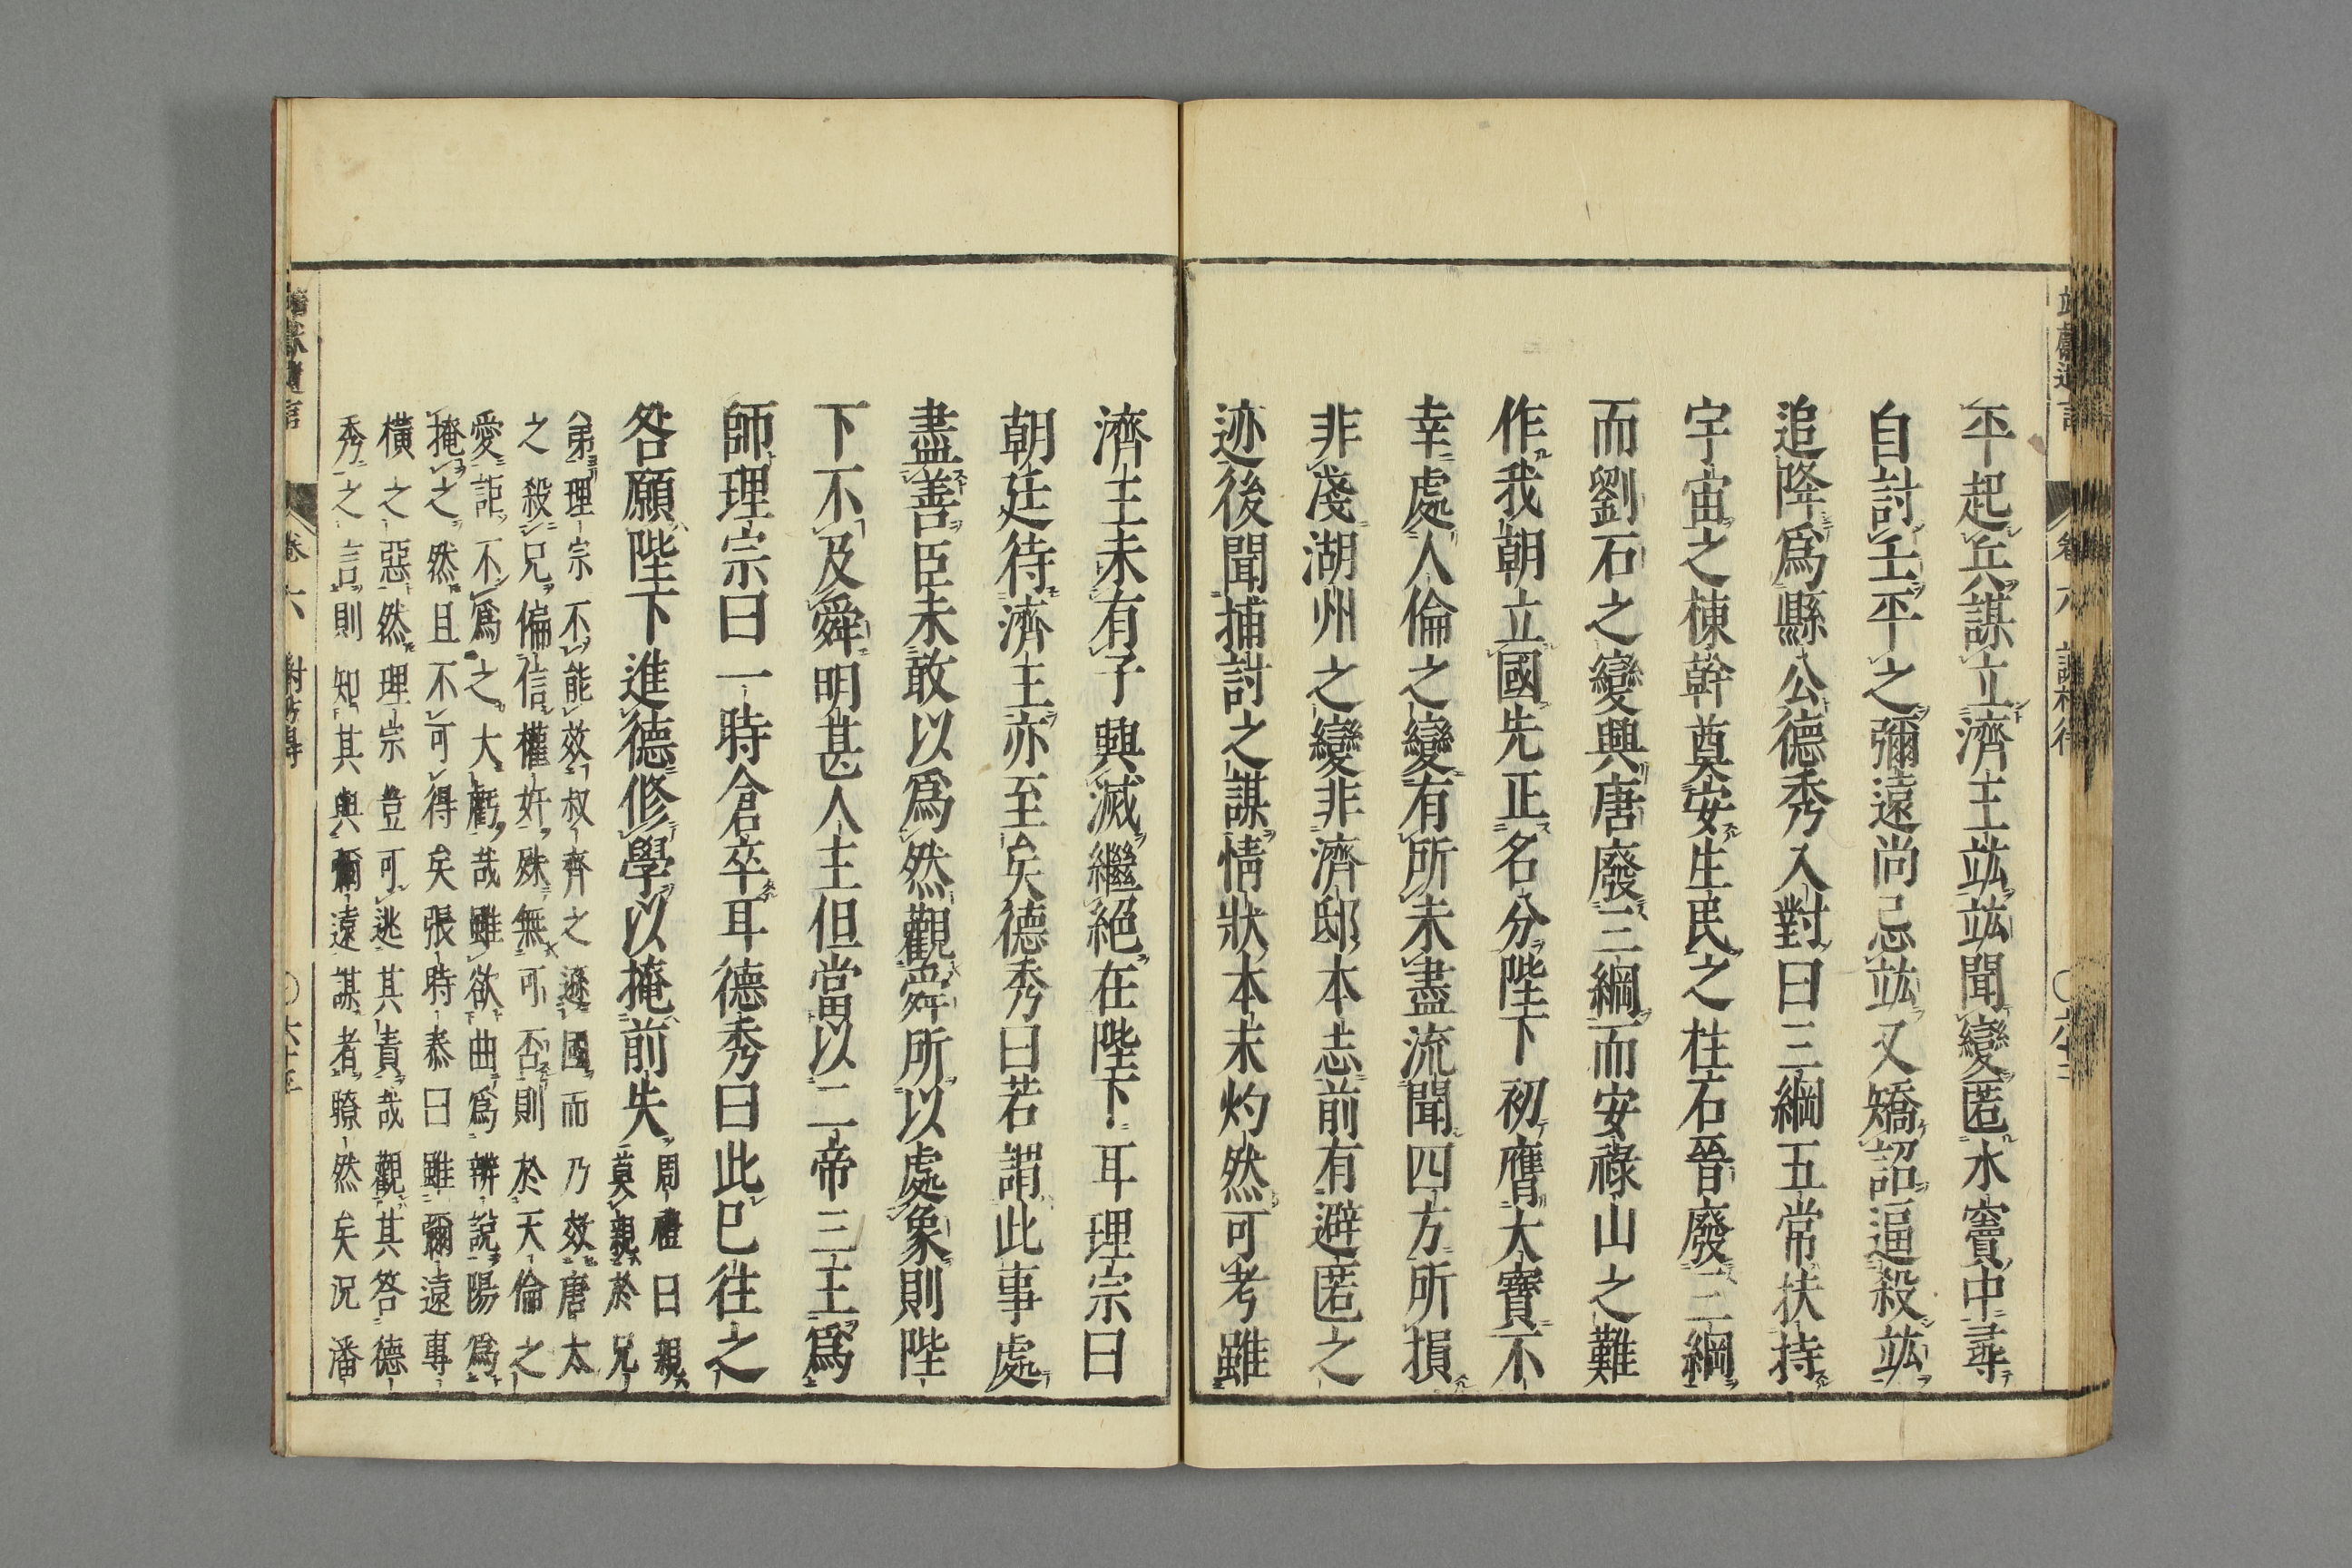 平起兵謀立濟王竑竑聞變匿水竇中尋
自討壬平之彌遠尚忌竑又矯詔逼殺竑
追降爲縣公德秀入對曰三綱五常扶持
宇宙之棟幹奠安生民之柱石晉廢三綱
而劉石之變興唐廢三綱而安祿山之難
作我朝立國先正名分陛下初膺大寶不
幸處人倫之變有所未盡流聞四方所損
非淺湖州之變非濟邸本志前有避匿之
迹後聞捕討之謀情狀本末灼然可考雖
濟王未有子興滅繼絕在陛下耳理宗曰
朝廷待濟王亦至矣德秀曰若謂此事處
盡善臣未敢以爲然觀舜所以處象則陛
下不及舜明甚人主但當以二帝三王爲
師理宗曰一時倉卒耳德秀曰此已往之
咎願陛下進德修學以掩前失周禮曰親
莫親於兄
弟理宗不能效叔齊之遜國而乃效唐太
之殺兄偏信權奸殊無可否則於天倫之
愛詎不爲之大虧哉雖欲曲爲辨說陽爲
掩之然且不可得矣張時泰曰雖彌遠專
橫之惡然理宗豈可逃其責哉觀其答德
秀之言則知其與彌遠謀者瞭然矣況潘
卷六
六十三